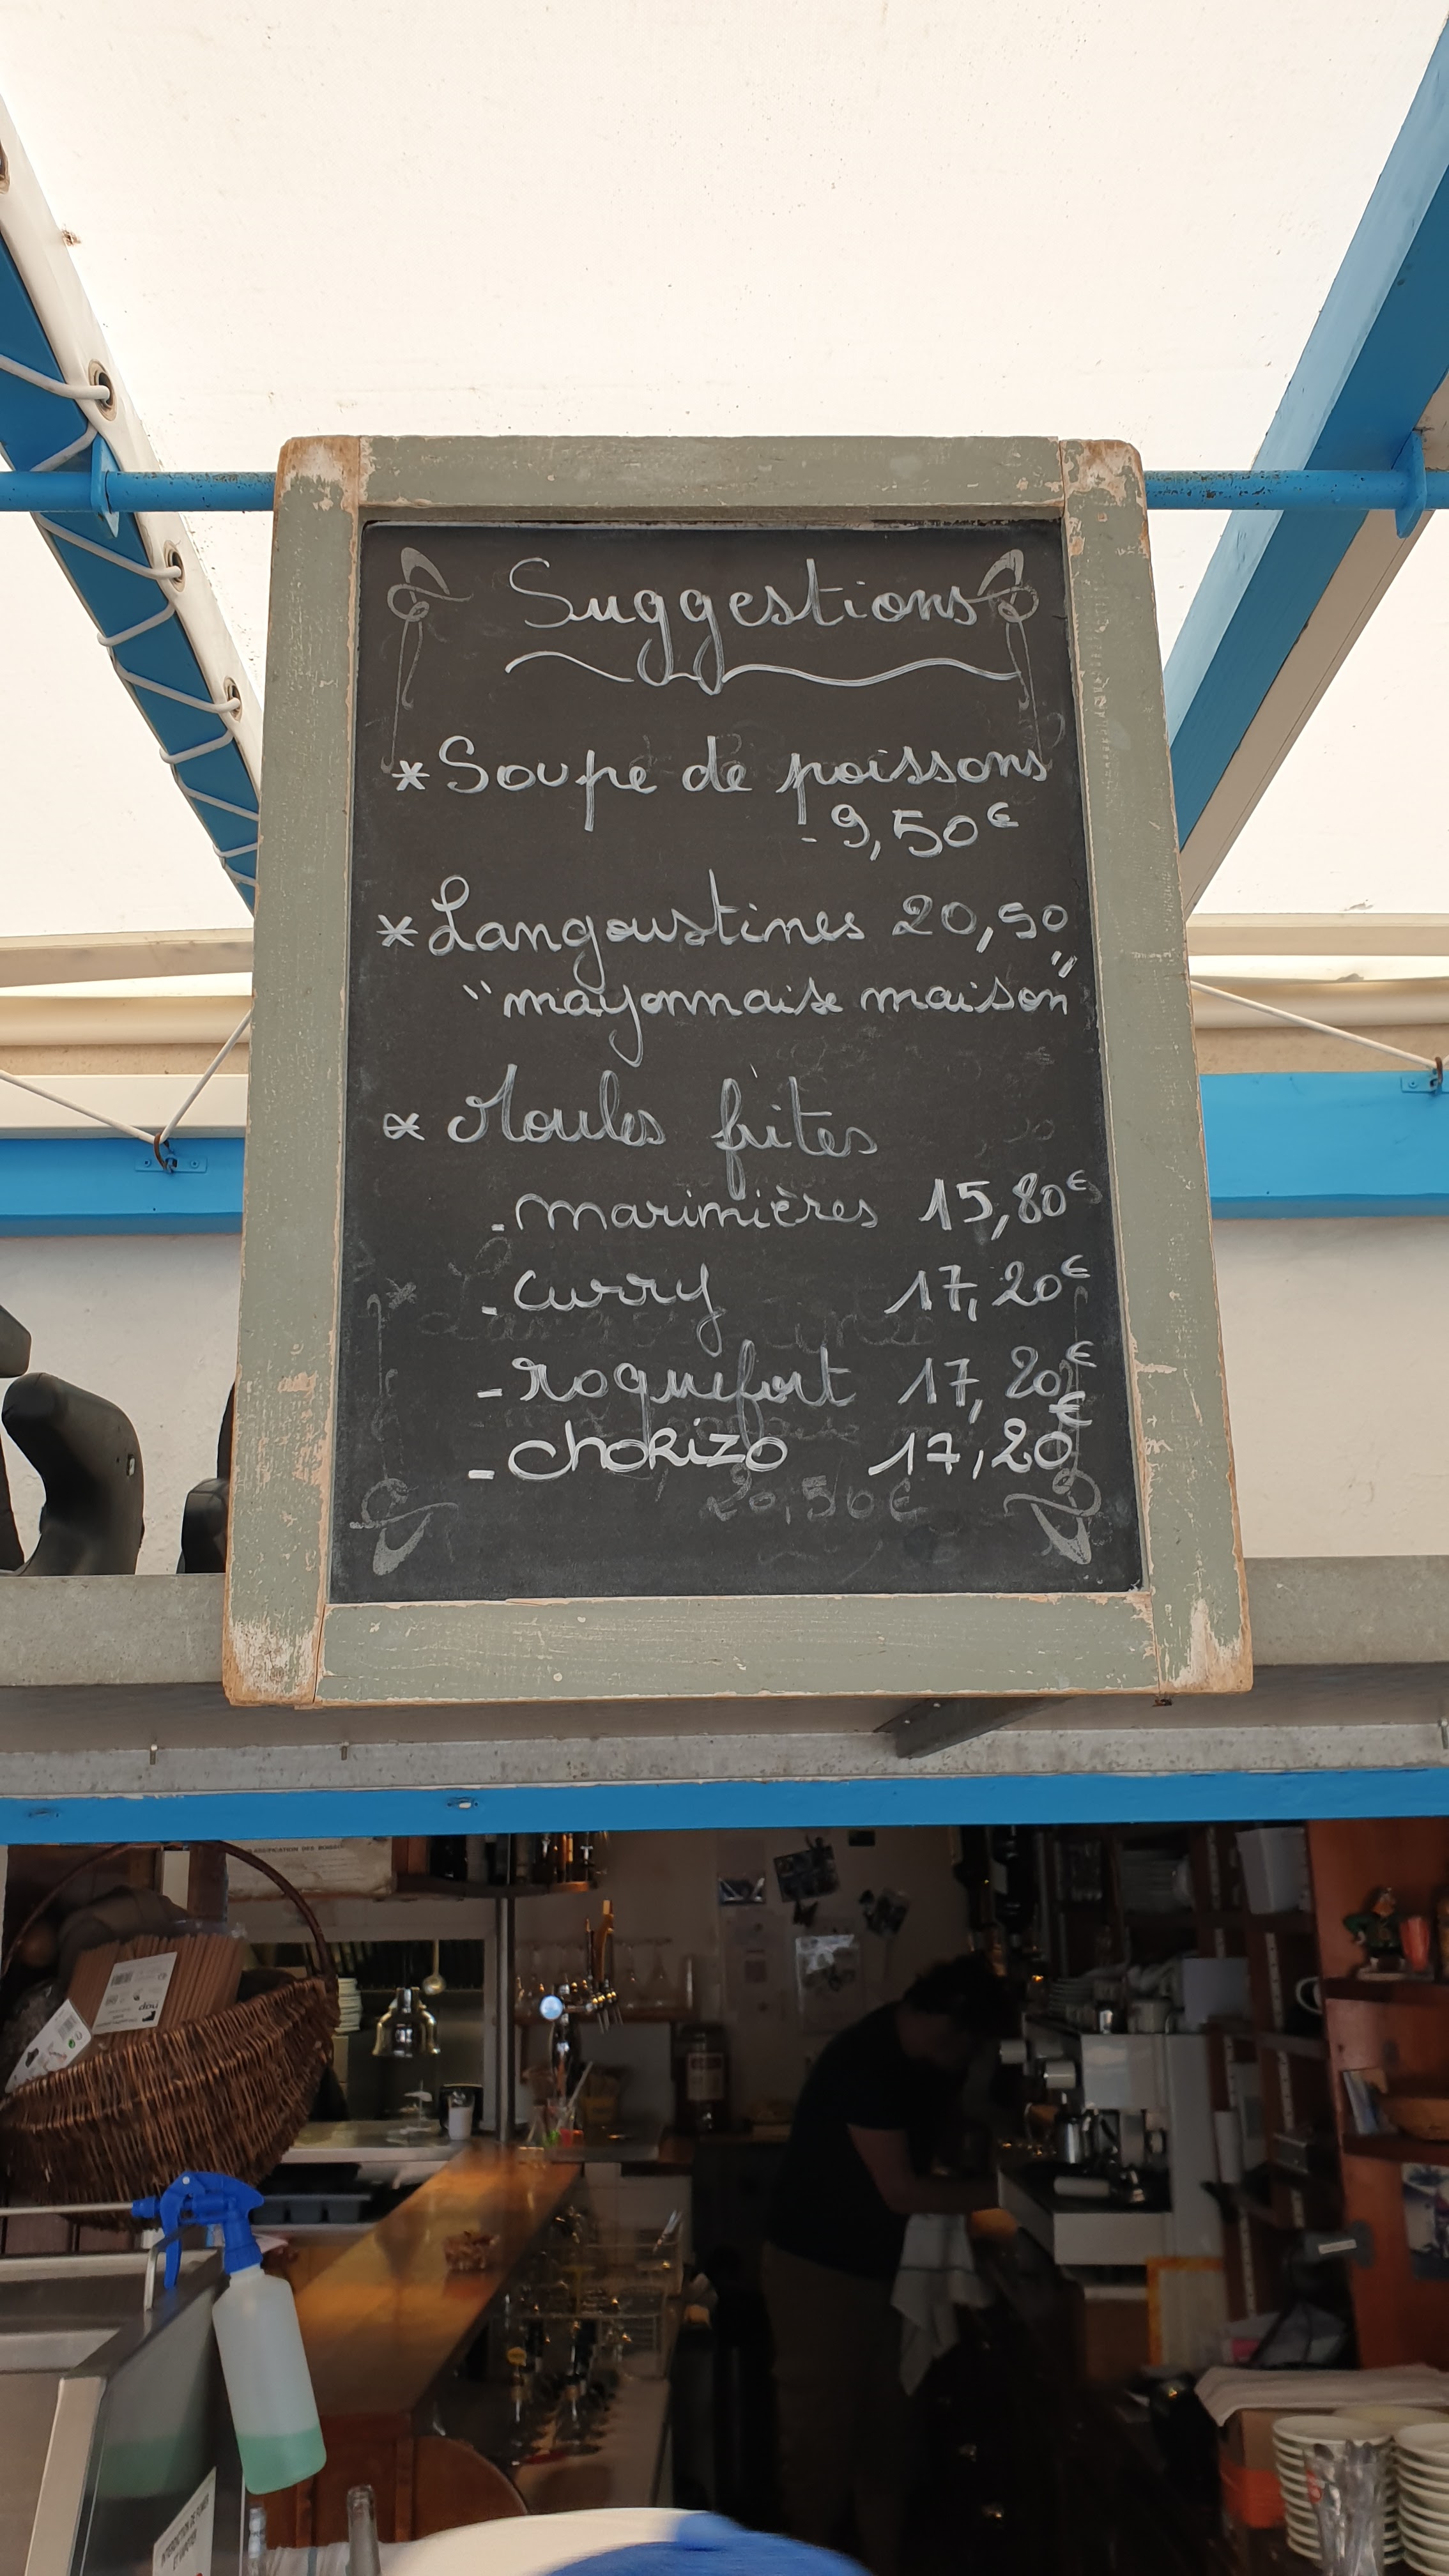 Suggestions
*Soupe de poissons
- 9,50€
*Langoustines 20,50
"mayonnaise maison"
* Moules frites
- marinières 15,80€
- curry 17,20€
- roquefort 17,20€
- chorizo 17,20€
20,50€